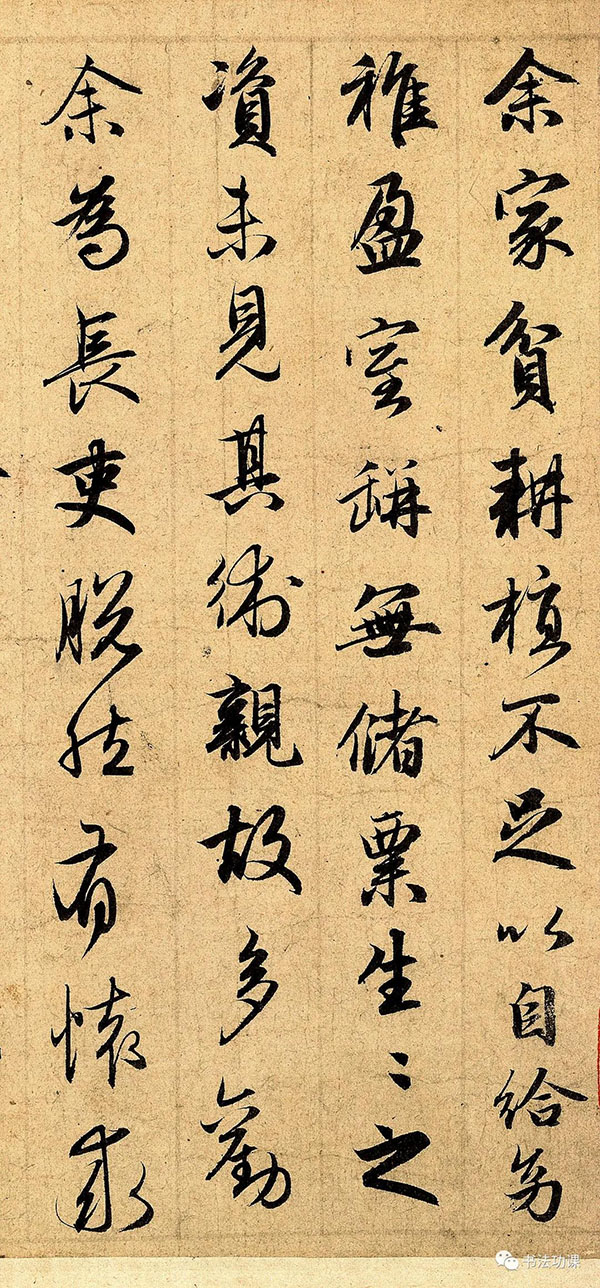 余家貧耕植不足以自給幼
稚盈室缾無儲粟生〻之
資未見其術親故多勸
余為長吏脫然有懷求
书法功课